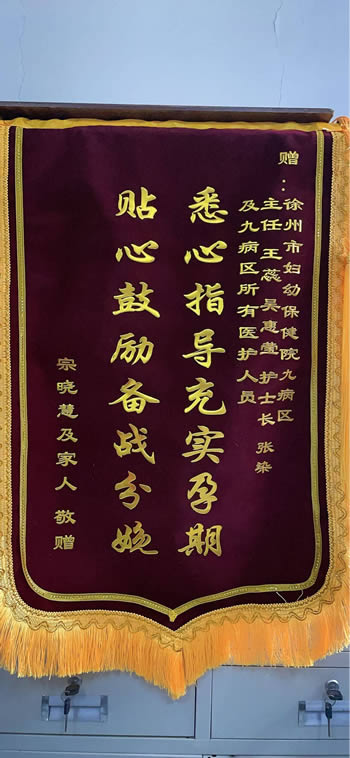 赠：
徐州市妇幼保健院九病区
主任 王蕊 吴惠莹 护士长 张染
及九病区所有医护人员
悉心指导充实孕期
贴心鼓励备战分娩
宗晓慧及家人 敬赠